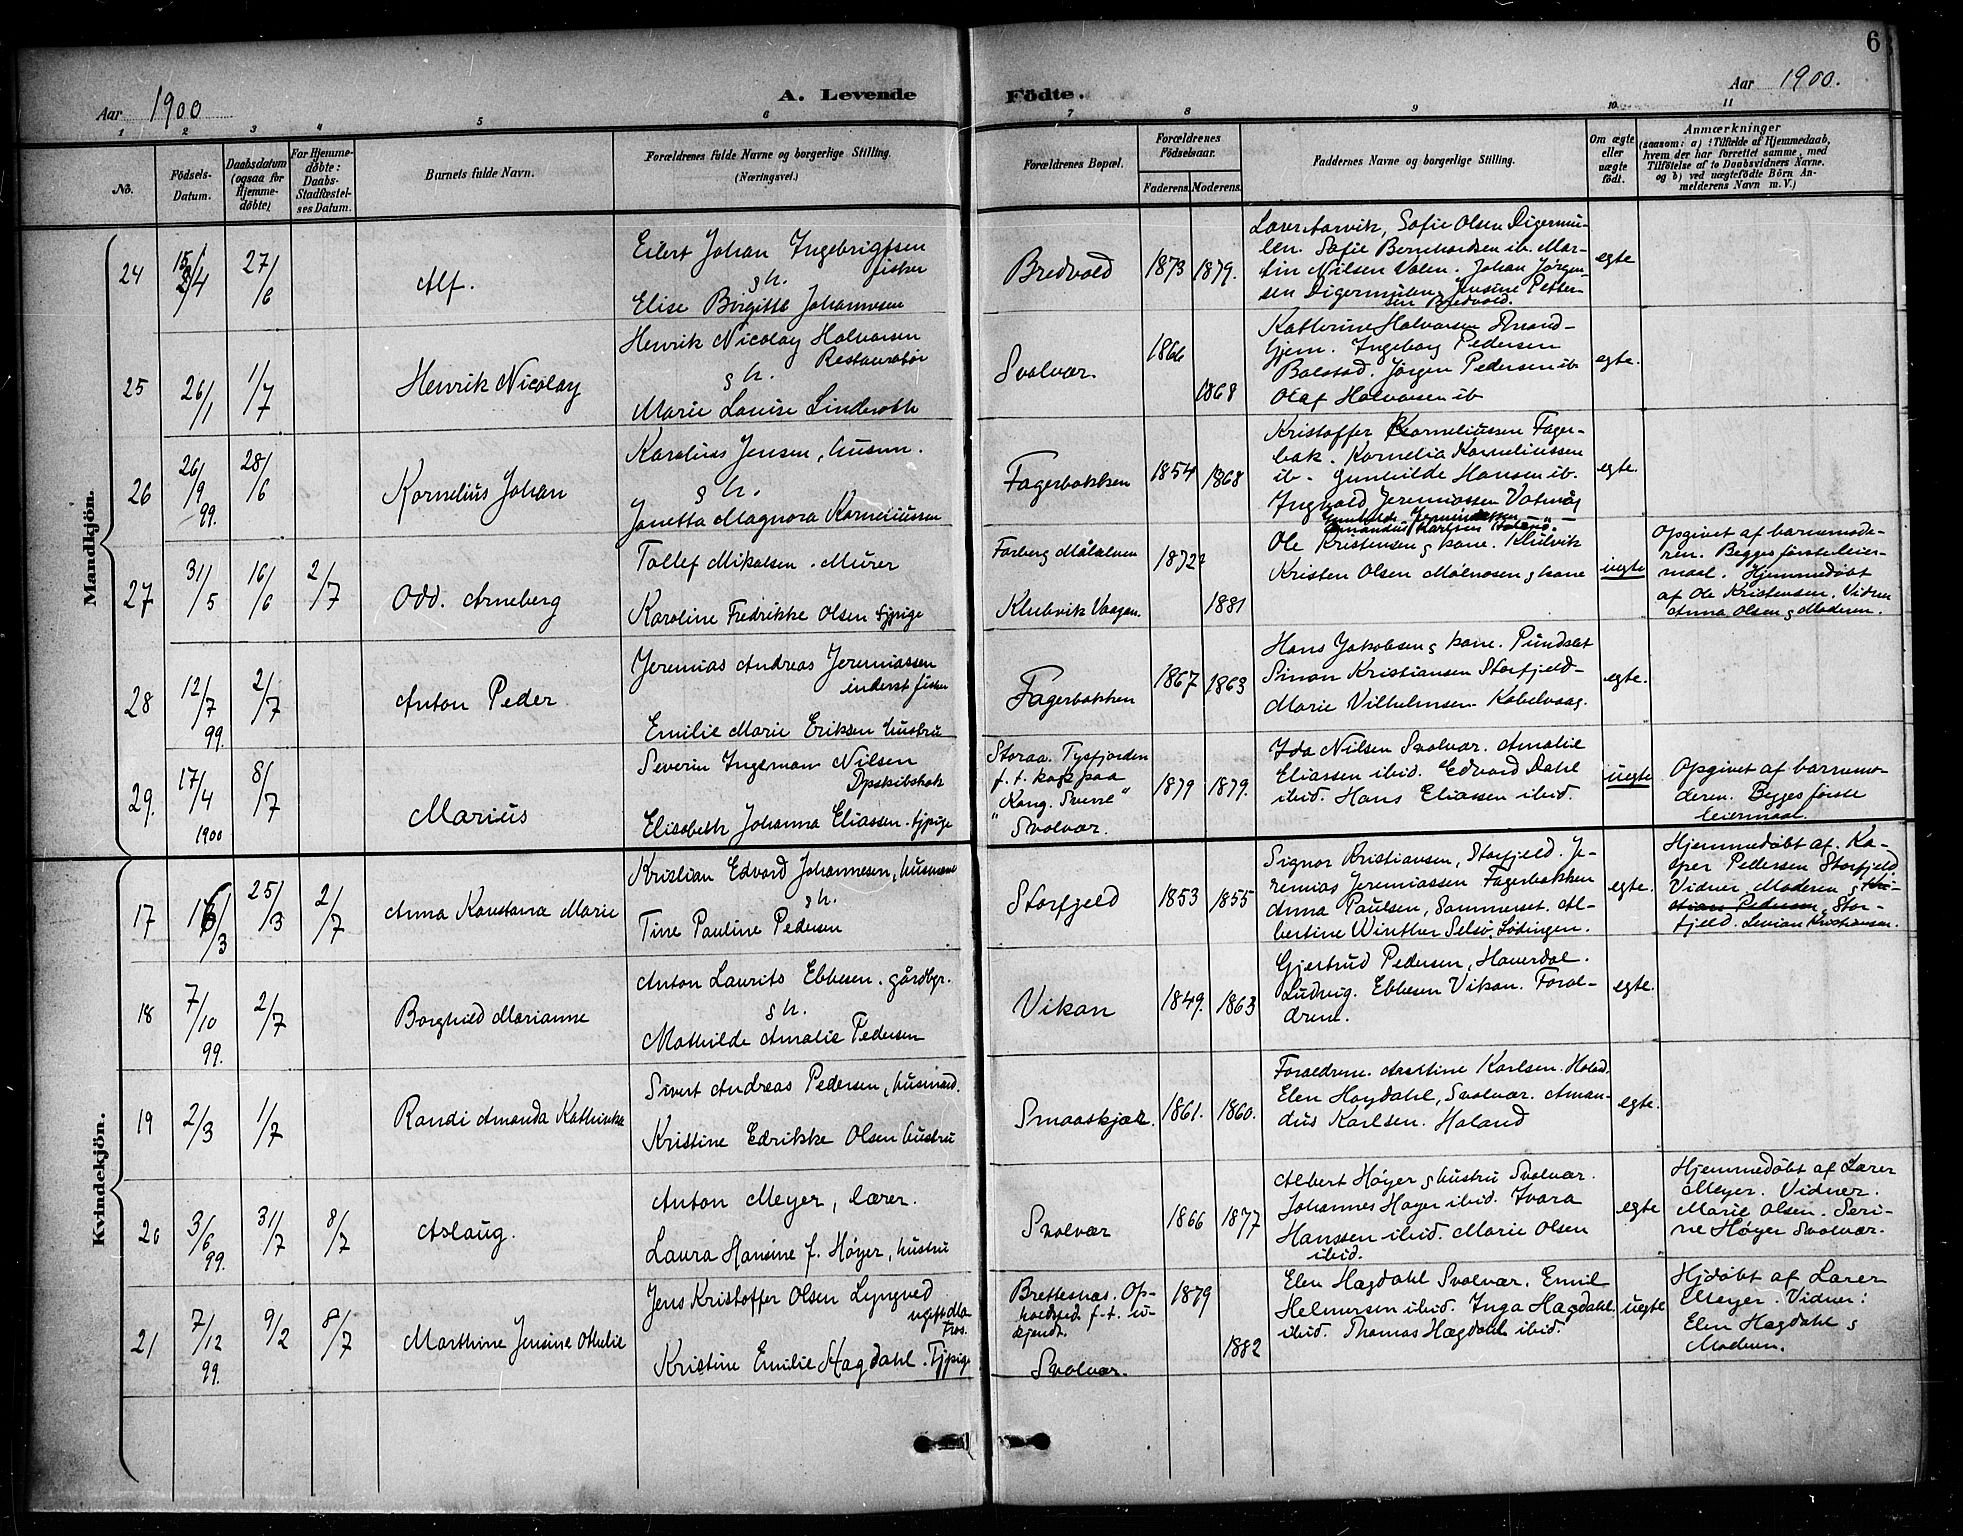 6
Aar 1900
A. Levende Födte.
Aar 1900.
1 2 3 4 5 6 7 8 9 10 11
No.
Födsels-Datum.
Daabsdatum (ogsaa for Hjemmedøbte)
For Hjemmedøbte: Daabs-Stadfæstelses Datum.
Barnets fulde Navn.
Forældrenes fulde Navne og borgerlige Stilling.
(Næringsvei.)
Forældrenes Bopæl.
Forældrenes Födselsaar.
Faderens. Moderens.
Faddernes Navne og borgerlige Stilling.
Om ægte eller uægte födt.
Anmærkninger
(saasom: a) i Tilfælde af Hjemmedaab,
hvem der har forrettet samme, med
Tilföielse af to Daabsvidners Navne.
og b) ved uægtefödte Börn An-
melderens Navn m. V.)
Mandkjön.
24 15/4 27/6 Alf.
Eilert Johan Ingebrigtsen
fisker
g h.
Elise Birgitte Johannesen
Bredvold 1873 1879.
Lærer Aarvik, Sofie Olsen Digermu-
len. Sofie Bernhardsen ib. Mar-
tin Nilsen Valen. Johan Jørgen-
sen Digermulen, Jensine Petter-
sen Bredvold.
egte
25 26/1 1/7 Henrik Nicolay
Henrik Nicolay Halvorsen
Restauratør
g h.
Marie Louise Linderoth
Svolvær. 1866 1868
Katherine Halvorsen Trond-
hjem. Ingeborg Pedersen
Balstad. Jørgen Pedersen ib
Olaf Halvorsen ib
egte.
26 26/9 99. 28/6 Kornelius Johan
Karolius Jensen, husm.
g h.
Janetta Magnora Korneliussen
Fagerbakken 1854 1868
Kristoffer Korneliussen Fager-
bak. Kornelia Korneliussen
ib. Gunhilde Hansen ib.
Ingvald Jeremiassen Vatnøg
Amandus Karlsen
egte.
27 31/5 16/6 2/7 Odd. Arneberg
Tollef Mikalsen. Murer
Karoline Fredrikke Olsen tjpige
Forberg Målselven
Klubvik Vaagan.
1872? 1881
Ole Kristensen g kone. Klubvik
Kristen Olsen Molnosen g kone
uegte
Opgivet af barnemode-
ren. Begges førsteleier-
maal. Hjemmedøbt
af Ole Kristensen, Vidner
Anna Olsen g Moderen.
28 12/7 99. 2/7 Anton Peder
Jeremias Andreas Jeremiassen
inderst fisker
Emilie Marie Eriksen hustru
Fagerbakken 1867 1863
Hans Jakobsen g kone. Pundslet
Simon Kristiansen Storfjeld-
Marie Vilhelmsen Kabelvaag.
egte.
29. 17/4 1900 8/7 Marius
Severin Ingeman Nilsen
Dpskibskok
Elisabeth Johanna Eliassen. tjpige
Storaa. Tysfjorden
f. t. kok paa
"Kong. Sverre"
Svolvær.
1879 1879.
Ida Nilsen Svolvær. Amalie
Eliassen ibid. Edvard Dahl
ibid. Hans Eliassen ibid.
uegte
Opgivet af barnemo-
deren. Begges første
leiermaal.
Kvindekjön.
17 16/3 25/3 2/7 Anna Konstanse Marie
Kristian Edvard Johannesen, husmand
g h.
Tine Pauline Pedersen
Storfjeld 1853 1855
Signor Kristiansen, Storfjeld. Je-
remias Jeremiassen Fagerbakken
Anna Paulsen, Sommerset. Al-
bertine Winther Selsø, Lødingen.
egte.
Hjemmedøbt af. Ka-
sper Pedersen Storfjeld.
Vidner Moderen g Kri-
stian Pedersen, Stor-
fjeld. Kristiansen.
18 7/10 99. 2/7 Borghild Marianne
Anton Laurits Ebbesen. gårdbgr.
g h.
Mathilde Amalie Pedersen
Vikan 1849. 1863
Gjertrud Pedersen, Haversdal.
Ludvig. Ebbesen Vikan. Foræl-
drene.
egte.
19 2/3 1/7 Randi Amanda Kathinka
Sivert Andreas Pedersen, husmand.
Kristine Edrikke Olsen hustru
Smaaskjær. 1861. 1860.
Forældrene. Karlsen. Holand.
Elen Høgdahl, Svolvær. Aman-
dus Karlsen. Holand
egte.
20 3/6 99. 31/7 8/7 Aslaug.
Anton Meyer, lærer.
Laura Hansine f. Høyer, hustru
Svolvær 1866 1877
Albert Høyer g hustru Svolvær.
Johannes Høyer ibid. Ivara
Hanssen ibid. Marie Olsen
ibid.
egte
Hjemmedøbt af Lærer
Meyer. Vidner.
Marie Olsen. Seri-
ne Høyer Svolvær.
21 7/12 99. 9/2 8/7 Marthine Jensine Othelie
Jens Kristoffer Olsen Lyngved
ugift
Kristine Emilie Hagdahl. Tjpige
Brettesnæs. Op-
holdsted f. t. u-
kjendt.
Svolvær.
1879 1882
Elen Hagdahl Svolvær. Emil
Helmersen ibid. Inga Hagdahl
ibid. Thomas Hagdahl ibid.
uegte
Hjdøbt af Lærer
Meyer. Vidner:
Elen Hagdahl g
Moderen.